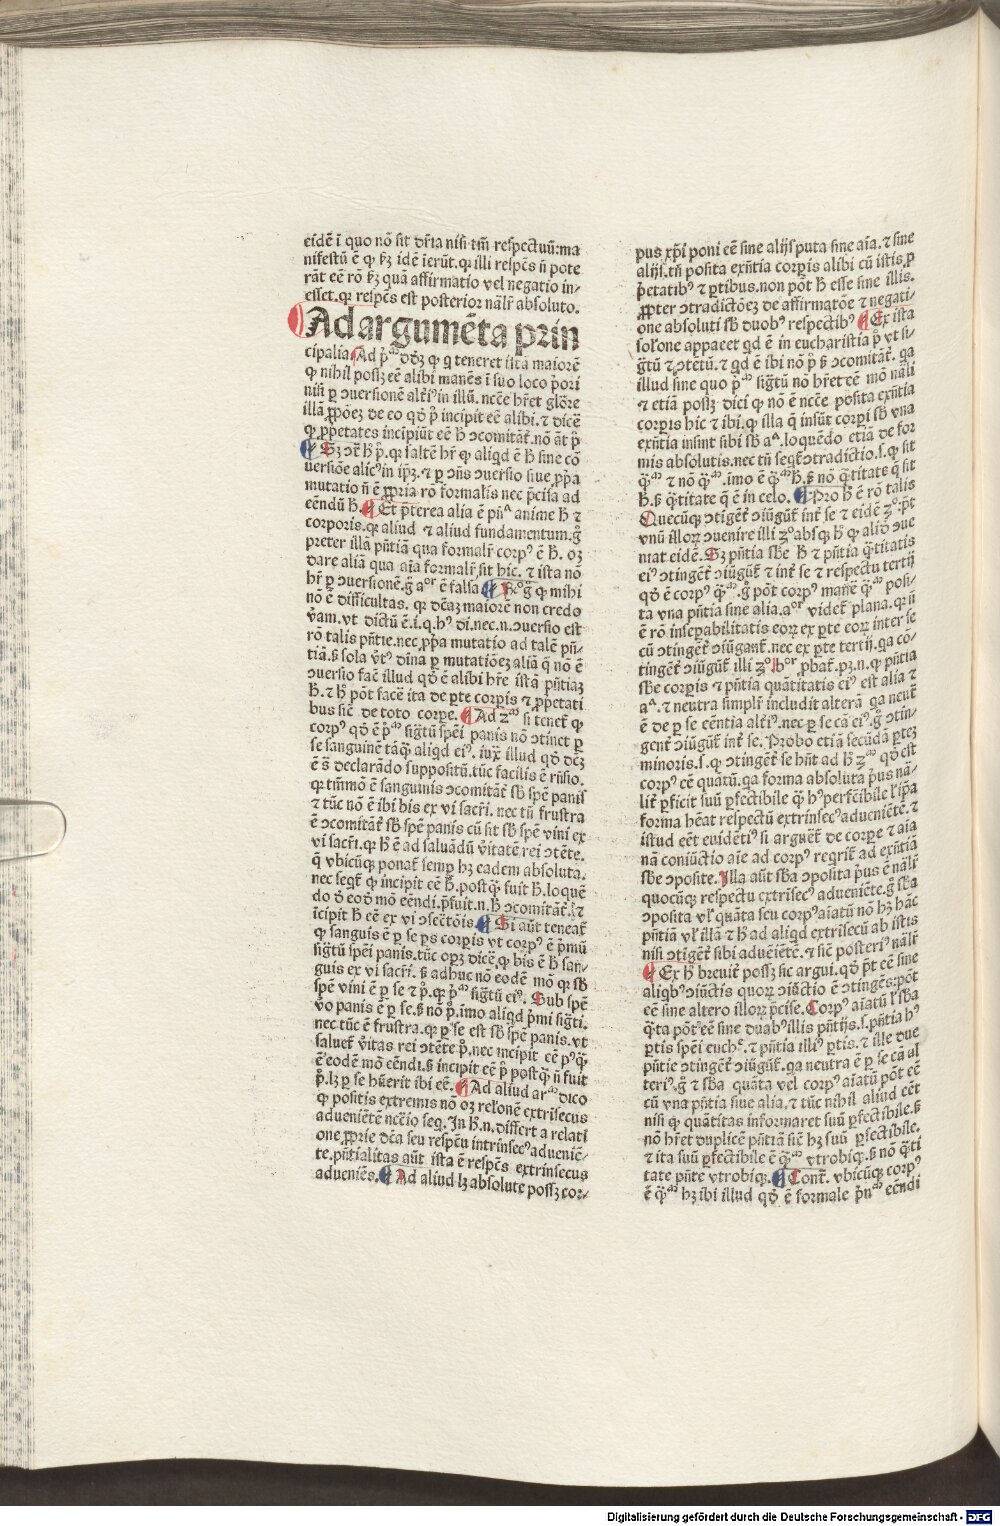 eidē ī quo nō sit dr̄ia nisi tm̄ respectuū: ma
nifestū ē ꝙ ꝑꝫ idē īerūt. qꝛ illi respc̄s n̄ pote
rāt eē rō ꝑꝫ quā affirmatio vel negatio in-
esset. qꝛ respc̄s est posterior nāl'r absoluto.
Ad argumēta prin
cipalia. Ad pᵐ dōꝫ ꝙ q teneret istā maiorē
ꝙ nihil posꝫ eē alibi manēs ī suo loco pͥori
nisi ꝑ ↄuersionē alt̄iꝰ in illū. ncc̄e hr̄et glōre
illā ꝓpōeꝫ de eo qd̄ pͥ incipit eē alibi. ⁊ dicē
ꝙ ꝓpetates incipiūt eē h̄ ↄcomitāt̄. nō āt pͥ
uersiōe alicꝰ in ip̄ꝫ. ⁊ ꝑ ↄn̄s ↄuersio siue ꝓpͥa
mutatio n̄ ē ꝓpria rō formalis nec p̄cisa ad
eēndū h̄. Et p̄terea alia ē pn̄ᵃ anime h̄ ⁊
corporis. qꝛ aliud ⁊ aliud fundamentum. gͦ
preter illa pn̄tiā qua formalr̄ corpꝰ ē h̄. oꝫ
dare aliā qua aīa formalr̄ sit hic. ⁊ ista nō
hr̄ ꝑ ↄuersionē. gͦ aᵒʳ ē falsa ꝙ mihi
nō ē difficultas. qꝛ dc̄aꝫ maiorē non credo
v̄am. vt dictū ē. i. q. hꝰ di. nec. n. ↄuersio est
rō talis pn̄tie. nec ꝓpͥa mutatio ad talē pn̄-
tiā. ꝫ sola v̄tꝰ dīna ꝑ mutatiōeꝫ aliā q̄ nō ē
ↄuersio facē illud qd̄ ē alibi hr̄e istā pn̄tiaꝫ
h̄. ⁊ h̄ pōt facē ita de ꝑte corpis ⁊ ꝓpetati
bus sic̄ de toto corpe. Ad 2ᵐ si tenet̄ ꝙ
corpꝰ qd̄ ē pᵐ sigt̄ū spēi panis nō ↄtinet ꝑ
se sanguinē tāꝙ aliqd eiꝰ. iuxͣ illud qd̄ dcēꝫ
ē s̄ declarādo suppositū. tūc facilis ē rn̄sio.
ꝙ tm̄mō ē sanguinis ↄcomitāt̄ sb̄ spē panis
⁊ tūc nō ē ibi his ex vi sacr̄i. nec tn̄ frustra
ē ↄcomitāt̄ sb̄ spē panis cū sit sb̄ spē vini ex
vi sacr̄i. qꝛ h̄ ē ad saluādū v̄itatē rei ↄtēte.
q̄ vbicūqꝫ ponat̄ semp hꝫ eadem absoluta.
nec seqt̄ ꝙ incipit eē h̄. postꝙ fuit h̄. loquē
do d̄ eod̄ mō eēndi. p̄fuit. n. h̄ ↄcomitāt̄. ⁊
īcipit h̄ eē ex vi ↄsecr̄tōis. Si aūt teneat̄
ꝙ sanguis ē ꝑ se ps corpis vt corpꝰ ē p̄mū
sigt̄ū spēi panis. tūc opꝫ dicē. ꝙ his ē h̄ san-
guis ex vi sacr̄i. ꝫ adhuc nō eodē mō qꝛ sb̄
spē vini ē ꝑ se ⁊ pͥ. qꝛ pᵐ sigt̄ū eiꝰ. Sub spē
v̄o panis ē ꝑ se. ꝫ nō pͥ. īmo aliqd p̄mi sigt̄i.
nec tūc ē frustra. qꝛ ꝑ se est sb̄ spē panis. vt
saluet̄ v̄itas rei ↄtēte pͥ. nec incipit eē pꝰꝙ
ē eodē mō eēndi. ꝫ incipit eē pͥ postꝙ n̄ fuit
pͥ. lꝫ ꝑ se hūerit ibi eē. Ad aliud arᵐ dico
ꝙ positis extremis nō oꝫ rel'onē extrīsecus
adueniētē ncc̄io seq. In h̄. n. differt a relati
one ꝓprie dc̄a seu respc̄u intrinsecꝰ adueniē-
te. pn̄tialitas aūt ista ē respc̄s extrinsecus
adueniēs. Ad aliud lꝫ absolute possꝫ cor-
pus xp̄i poni eē sine alijs puta sine aīa. ⁊ sine
alijs. tn̄ posita exn̄tia corpis alibi cū istis ꝓ
petatibꝰ ⁊ ꝑtibus. non pōt h̄ esse sine illis.
ꝓpter ↄtradictōeꝫ de affirmatōe ⁊ negati-
one absoluti sb̄ duobꝰ respectibꝰ Ex ista
sol'one appaeet qd ē in eucharistia pͥ vt si-
gt̄ū ⁊ ↄtētū. ⁊ qd ē ibi nō pͥ ꝫ ↄcomitāt̄. qa
illud sine quo pᵐ sigt̄ū nō hr̄et eē mō nāli
⁊ etiā possꝫ dici ꝙ nō ē ncc̄e posita exn̄tia
corpis hic ⁊ ibi. ꝙ illa q̄ insūt corpi sb̄ vna
exn̄tia insint sibi sb̄ aᵃ. loquēdo etiā de for
mis absolutis. nec tn̄ seqt̄ ↄtradictio. s. ꝙ sit
h̄. ꝫ q̄titate q̄ ē in celo. Pro h̄ ē rō talis
Quecūqꝫ ↄtigēt̄ ↄiūgūt̄ int̄ se ⁊ eidē 2ᵒ. pōt
vnū illoꝝ ↄuenire illi 2ᵒ absqꝫ h̄ ꝙ aliō ↄue
niat eidē. Sꝫ pn̄tia sb̄e h̄ ⁊ pn̄tia q̄titatis
eiꝰ ↄtingēt̄ ↄiūgūt̄ ⁊ int̄ se ⁊ respectu tertij
qd̄ ē corpꝰ qᵐ. gͦ pōt corpꝰ manē qᵐ posi-
ta vna pn̄tia sine alia. aᵒʳ videt̄ plana. qꝛ n̄
ē rō inseꝑabilitatis eoꝝ ex ꝑte eoꝝ inter se
cū ↄtingēt̄ ↄiūgant̄. nec ex ꝑte tertij. qa cō-
tingēt̄ ↄiūgūt̄ illi 2ᵒ. bᵒʳ ꝓbat̄. pꝫ. n. ꝙ pn̄tia
sb̄e corpis ⁊ pn̄tia quātitatis eiꝰ est alia ⁊
aᵃ. ⁊ neutra simplr̄ includit alterā qa neut̄
ē de ꝑ se eēntia alt̄iꝰ. nec ꝑ se cā eiꝰ. gͦ ↄtin-
gent̄ ↄiūgūt̄ int̄ se. Probo etiā secūdā ꝑteꝫ
minoris. s. ꝙ ↄtingēt̄ se hn̄t ad h̄ 2ᵐ qd̄ est
corpꝰ eē quātū. qa forma absoluta pͥus nā-
lit̄ ꝑficit suū ꝑfectibile ꝙ hꝰ ꝑfectibile ī ip̄a
forma hēat respectū extrinsecꝰ adueniētē. ⁊
istud eēt euidētiꝰ si arguēt̄ de corpe ⁊ aīa
nā coniūctio aīe ad corpꝰ reqrit̄ ad exn̄tiā
sb̄e ↄposite. Illa aūt sb̄a ↄposita pͥus ē nālr̄
quocūqꝫ respectu extrīsecꝰ adueniēte. gͦ sb̄a
ↄposita vl' quāta seu corpꝰ aīatū nō hꝫ hāc
pn̄tiā vl' illā ⁊ h̄ ad aliqd extrīsecū ab istis
nisi ↄtigēt̄ sibi adueniētē. ⁊ sic posteriꝰ nālr̄
Ex h̄ breuit̄ possꝫ sic argui. qd̄ pōt eē sine
aliqbꝰ ↄiūctis quoꝝ ↄiūctio ē ↄtingēs: pōt
eē sine altero illoꝝ p̄cise. Corpꝰ aīatū l' sb̄a
q̄ta pōt eē sine duabꝰ illis pn̄tijs. s. pn̄tia hꝰ
ꝑtis spēi euchᵉ. ⁊ pn̄tia illiꝰ ꝑtis. ⁊ ille due
pn̄tie ↄtingēt̄ ↄiūgūt̄. qa neutra ē ꝑ se cā al
teriꝰ. gͦ ⁊ sb̄a quāta vel corpꝰ aīatū pōt eē
cū vna pn̄tia siue alia. ⁊ tūc nihil aliud eēt
nisi ꝙ quātitas informaret suū ꝑfectibile. ꝫ
nō hr̄et duplicē pn̄tiā sic̄ hꝫ suū ꝑfectibile.
⁊ ita suū ꝑfectibile ē qᵐ vtrobiqꝫ. ꝫ nō q̄ti
tate pn̄te vtrobiqꝫ. Cont̄. vbicūqꝫ corpꝰ
ē qᵐ hꝫ ibi illud qd̄ ē formale pn̄ᵐ eēndi
Digitalisierung gefördert durch die Deutsche Forschungsgemeinschaft - DFG